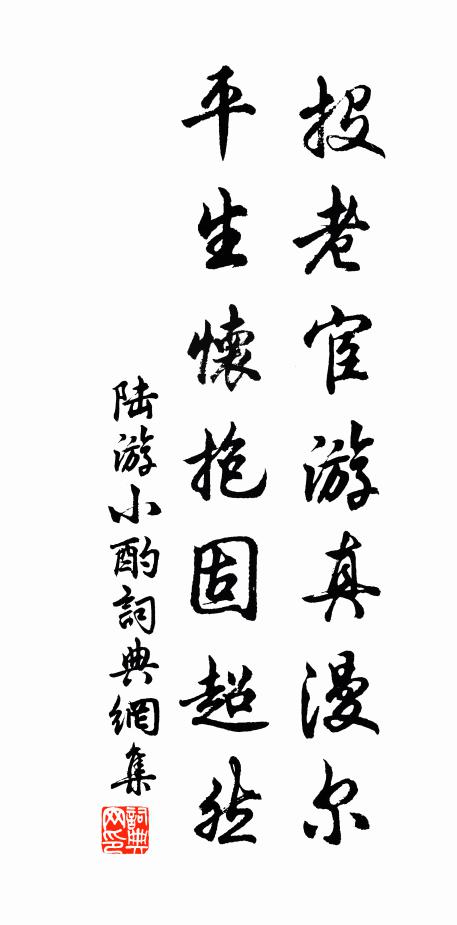 投老宦游真漫尔
平生懷抱固超然
陆游小酌詞典網集
詞典网印